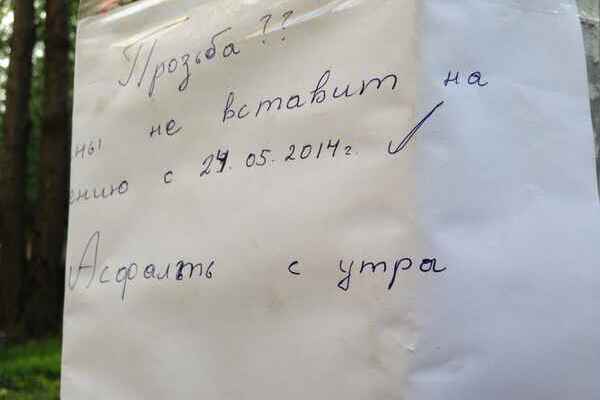 Прозьба??
ны не вставит на
ению с 24.05.2014г.
Асфалть с утра